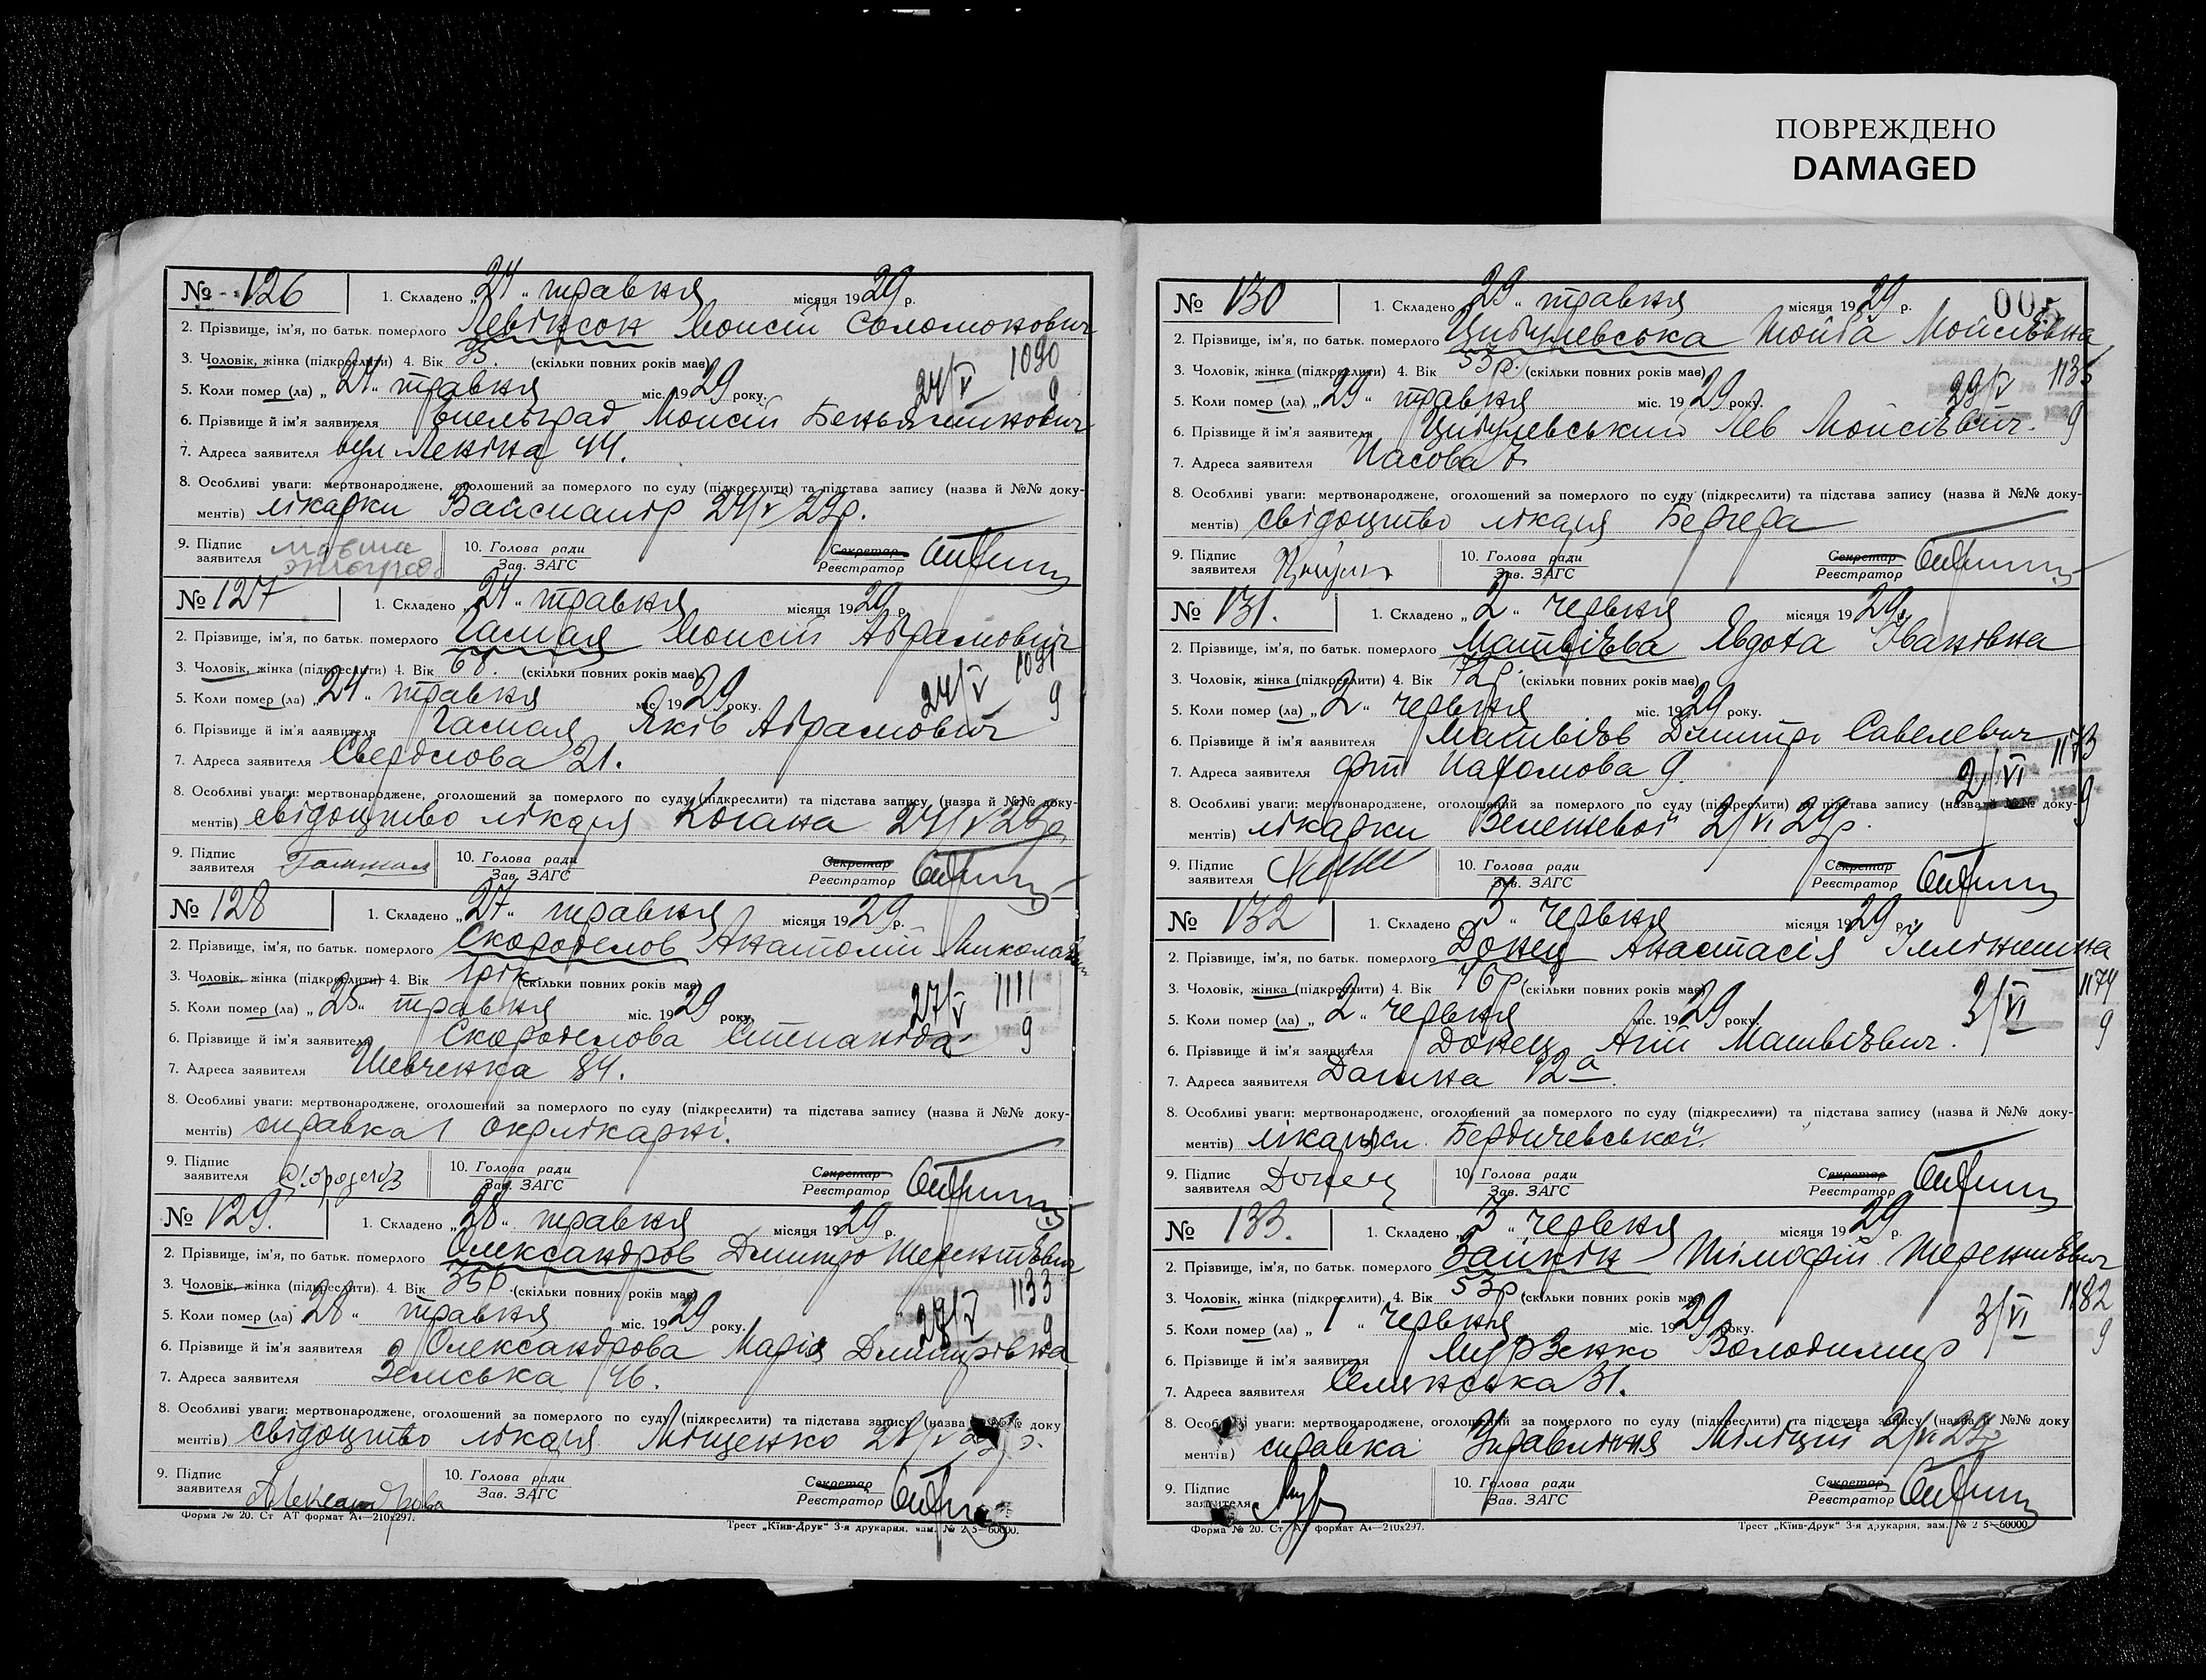 ПОВРЕЖДЕНО
DAMAGED
№ 126 1. Складено „24“ травня місяця 1929 р.
2. Прізвище, ім'я, по батьк. померлого Левінсон Мойсій Соломонович
3. Чоловік, жінка (підкреслити) 4. Вік (скільки повних років має)
1090
5. Коли помер (ла) „24“ травня міс. 1929 року. 24/V
9
6. Прізвище й ім'я заявителя Мойсій
7. Адреса заявителя вул Леніна 44.
8. Особливі уваги: мертвонароджене, оголошений за померлого по суду (підкреслити) та підстава запису (назва й №№ доку-
ментів) лікарки 24/V 29р.
9. Підпис заявителя 10. Голова ради Зав. ЗАГС Секретар Реєстратор
№ 127 1. Складено „24“ травня місяця 1929 р.
2. Прізвище, ім'я, по батьк. померлого Гасмая Мойсій Абрамович
3. Чоловік, жінка (підкреслити) 4. Вік 68. (скільки повних років має)
1091
5. Коли помер (ла) „24“ травня міс. 1929 року. 24/V
9
6. Прізвище й ім'я заявителя Гасмая Яків Абрамович
7. Адреса заявителя Свердлова 21.
8. Особливі уваги: мертвонароджене, оголошений за померлого по суду (підкреслити) та підстава запису (назва й №№ доку-
ментів) свідоцтво лікаря Когана 24/V 29р
9. Підпис заявителя 10. Голова ради Зав. ЗАГС Секретар Реєстратор
№ 128 1. Складено „27“ травня місяця 1929 р.
2. Прізвище, ім'я, по батьк. померлого Скороделов Анатолій
3. Чоловік, жінка (підкреслити) 4. Вік 1рік (скільки повних років має)
5. Коли помер (ла) „25“ травня міс. 1929 року. 27/V 1111
9
6. Прізвище й ім'я заявителя Скороделова Степаніда
7. Адреса заявителя Шевченка 84.
8. Особливі уваги: мертвонароджене, оголошений за померлого по суду (підкреслити) та підстава запису (назва й №№ доку-
ментів) справка 1 окрлікарні.
9. Підпис заявителя 10. Голова ради Зав. ЗАГС Секретар Реєстратор
№ 129. 1. Складено „28“ травня місяця 1929 р.
2. Прізвище, ім'я, по батьк. померлого Олександров Дмитро Терентієвич
3. Чоловік, жінка (підкреслити). 4. Вік 35р. (скільки повних років має)
1133
5. Коли помер (ла) 28 “ травня міс. 1929 року. 28/V
9
6. Прізвище й ім'я заявителя Олександрова Марія Дмитрівна
7. Адреса заявителя Земська 46.
8. Особливі уваги: мертвонароджене, оголошений за померлого по суду (підкреслити) та підстава запису (назва й №№ доку
ментів) свідоцтво лікаря Міщенко 28/V
9. Підпис заявителя Александрова 10. Голова ради Зав. ЗАГС Секретар Реєстратор
Форма № 20. Ст АТ формат А4—210х297. Трест „Київ-Друк“ 3-я друкарня, зам. № 2 5—60000.
№ 130 1. Складено „29“ травня місяця 1929 р. 005
2. Прізвище, ім'я, по батьк. померлого Цибулевська Мойсіївна
3. Чоловік, жінка (підкреслити) 4. Вік 53р. (скільки повних років має)
1135
5. Коли помер (ла) „29“ травня міс. 1929 року. 29/V
9
6. Прізвище й ім'я заявителя Цибулевський Лев Мойсієвич.
7. Адреса заявителя Часова 7
8. Особливі уваги: мертвонароджене, оголошений за померлого по суду (підкреслити) та підстава запису (назва й №№ доку-
ментів) свідоцтво лікаря Бергера
9. Підпис заявителя 10. Голова ради Зав. ЗАГС Секретар Реєстратор
№ 131. 1. Складено „2“ червня місяця 1929р.
2. Прізвище, ім'я, по батьк. померлого Матвієва Явдоха Іванівна
3. Чоловік, жінка (підкреслити) 4. Вік 72р. (скільки повних років має)
5. Коли помер (ла) „2“ червня міс. 1929 року.
6. Прізвище й ім'я заявителя Матвієв Дмитро Савелевич
1173
7. Адреса заявителя Пахомова 9. 2/VI
9
8. Особливі уваги: мертвонароджене, оголошений за померлого по суду (підкреслити) та підстава запису (назва й №№ доку-
ментів) лікарки 2/VI 29р.
9. Підпис заявителя 10. Голова ради Зав. ЗАГС Секретар Реєстратор
№ 132 1. Складено „3“ червня місяця 1929 р.
2. Прізвище, ім'я, по батьк. померлого Донец Анастасія
3. Чоловік, жінка (підкреслити) 4. Вік 76р. (скільки повних років має)
1174
5. Коли помер (ла) „2“ червня міс. 1929 року 3/VI
9
6. Прізвище й ім'я заявителя Донец Матвієвич.
7. Адреса заявителя 12а.
8. Особливі уваги: мертвонароджене, оголошений за померлого по суду (підкреслити) та підстава запису (назва й №№ доку-
ментів) лікарки Бердичевської.
9. Підпис заявителя Донец 10. Голова ради Зав. ЗАГС Секретар Реєстратор
№ 133. 1. Складено „3“ червня місяця 1929 р.
2. Прізвище, ім'я, по батьк. померлого Тімофій Терентієвич
3. Чоловік, жінка (підкреслити). 4. Вік 53р (скільки повних років має)
1182
5. Коли помер (ла) „1“ червня міс. 1929 року. 3/VI
9
6. Прізвище й ім'я заявителя Мурзенко Володимир
7. Адреса заявителя Селянська 31.
8. Особливі уваги: мертвонароджене, оголошений за померлого по суду (підкреслити) та підстава запису (назва й №№ доку
ментів) справка Управління Міліції 2/VI 29р
9. Підпис заявителя 10. Голова ради Зав. ЗАГС Секретар Реєстратор
Форма № 20. Ст АТ формат А4—210х297. Трест „Київ-Друк“ 3-я друкарня, зам. № 2 5—60000